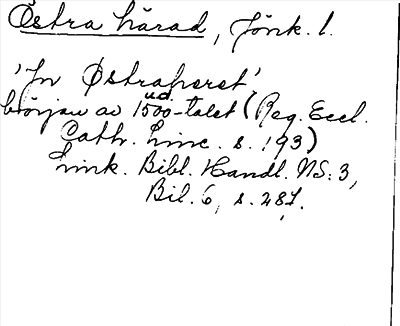 Östra härad, Jönk. l.
'Jn Østraheret',
ud.
början av 1500-talet (Reg. Eccl.
Cath. Linc. s. 193)
Link. Bibl. Handl. NS:3,
Bil. 6, s. 281.